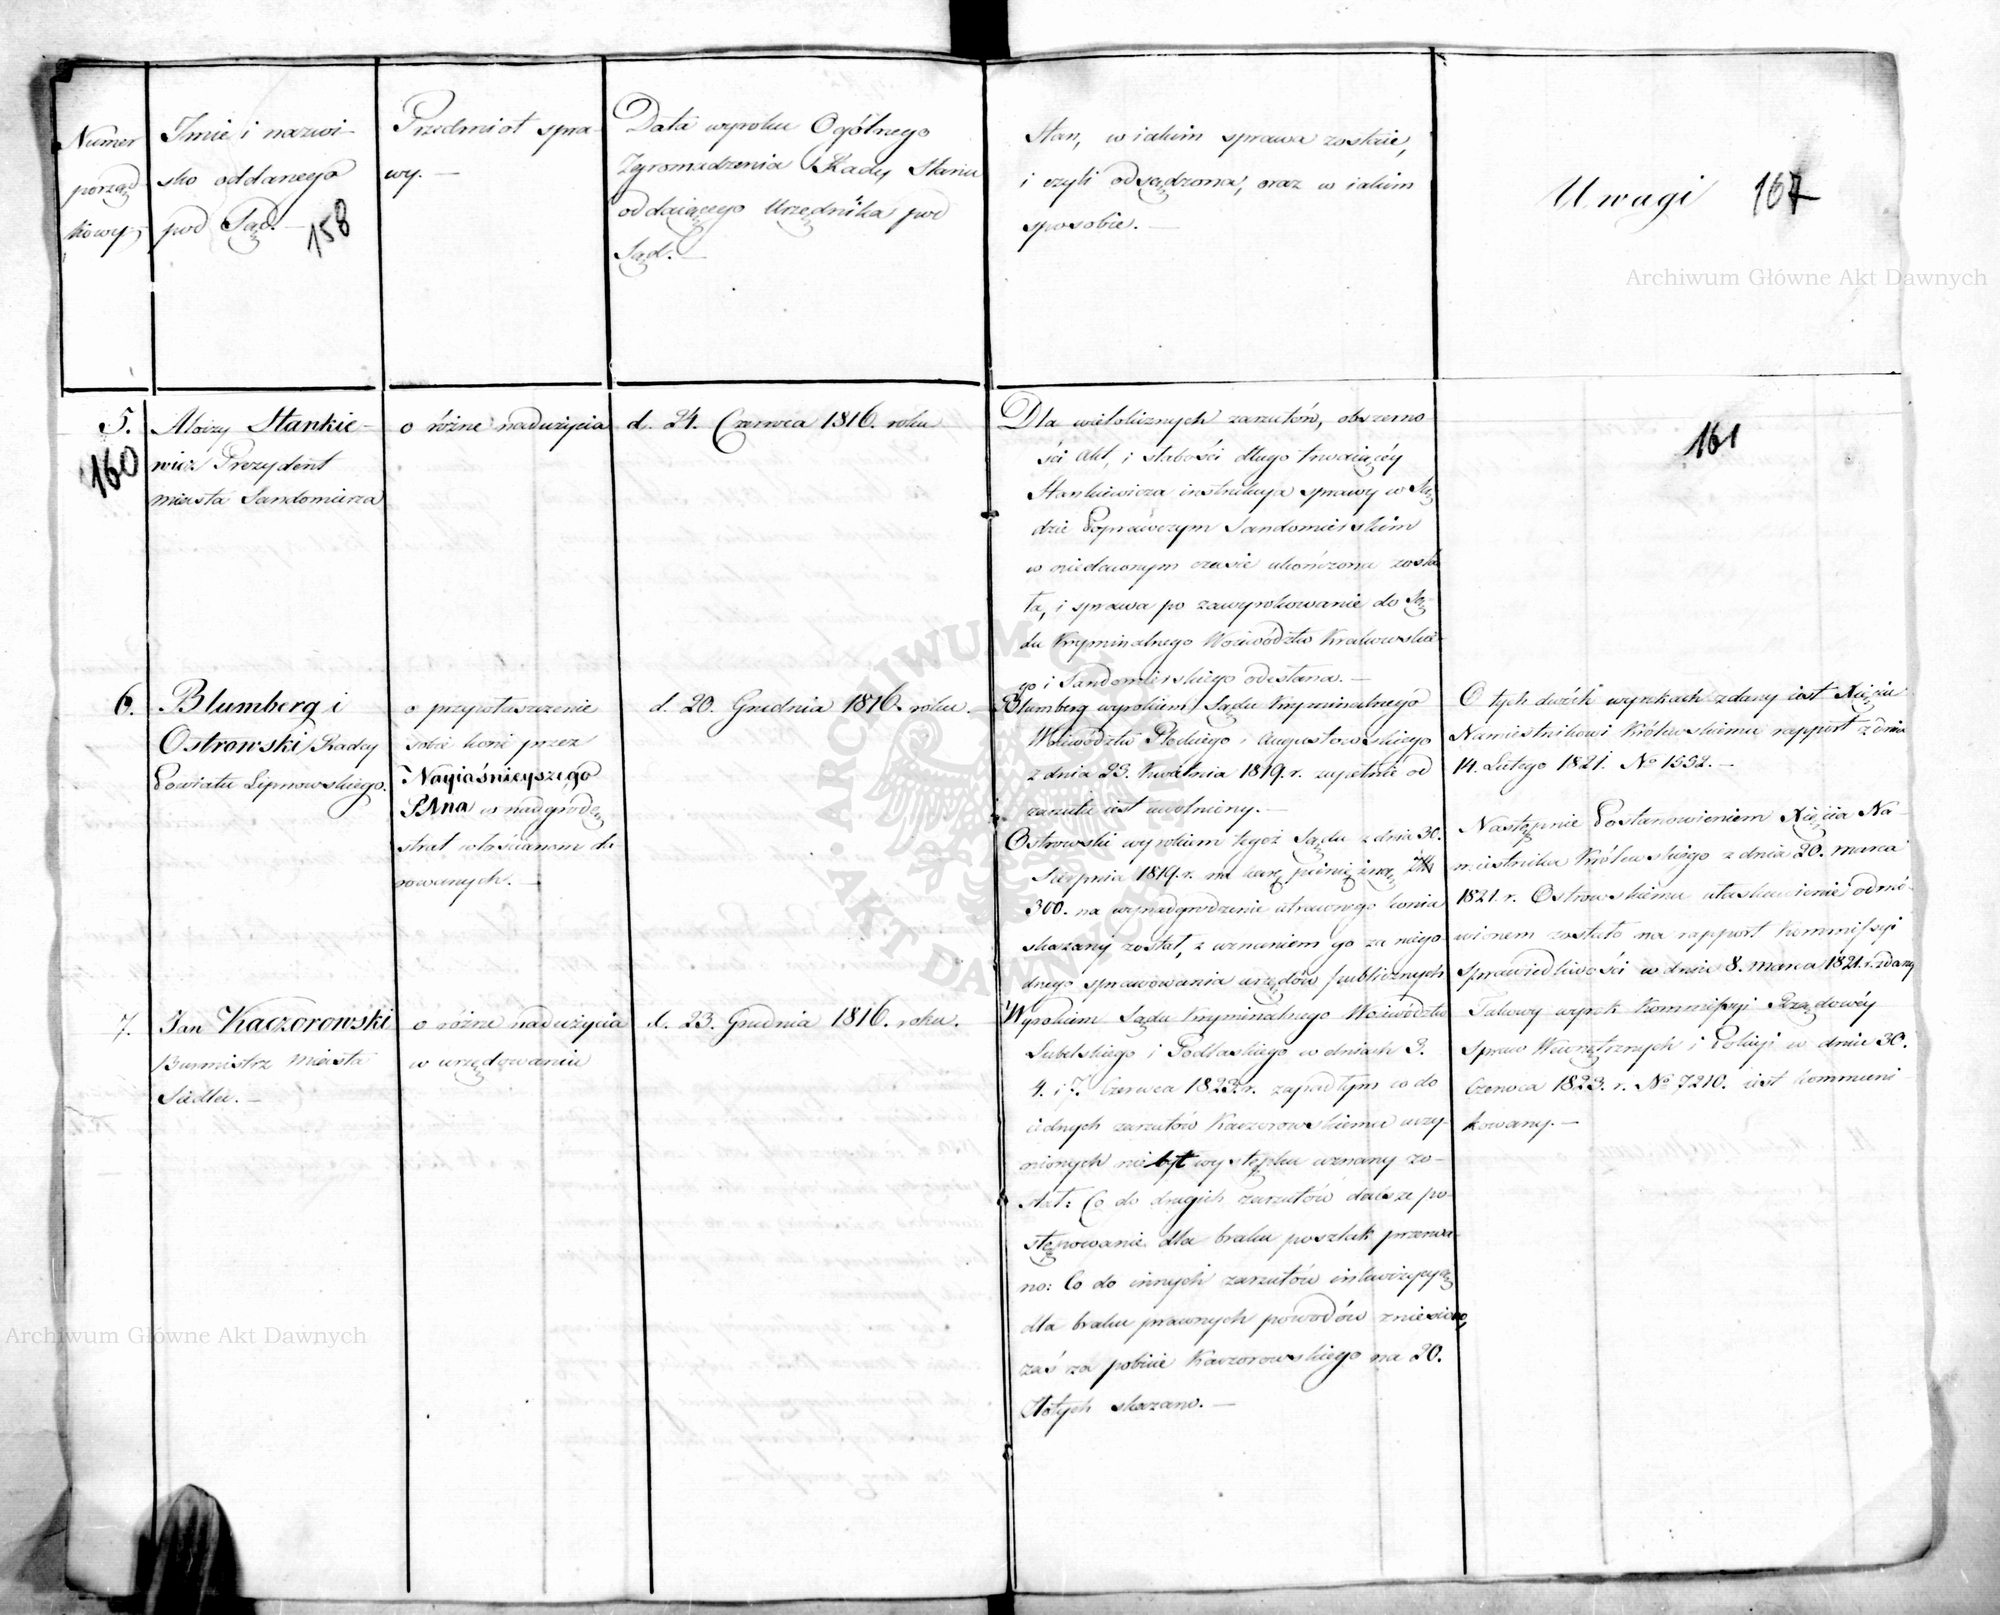 Numer
porząd-
kowy
Imie i nazwi-
sko oddanego
pod Sąd. —
158
Przedmiot spra-
wy. —
Data wyroku Ogólnego
Zgromadzenia Rady Stanu
oddaiącego Urzędnika pod
Sąd. —
Stan, w iakim sprawa zostaie,
i czyli odsądzona, oraz w iakim
sposobie. —
Uwagi
167
5.
160
Aloizy Stankie-
wicz Prezydent
miasta Sandomierza
o różne nadużycia
d. 24. Czerwca 1816. roku
Dla wielolicznych zarzutów, obszerno
ści Akt, i słabości długo trwaiącéy
Stankiewicza instrukcya sprawy w Są-
dzie Poprawczym Sandomierskim
w niedawnym czasie ukończona zosta
ła, i sprawa po zawyrokowanie do Są-
du Kryminalnego Woiewództw Krakowskie-
go i Sandomierskiego odesłana. —
161
6.
Blumberg i
Ostrowski Radcy
Powiatu Lipnowskiego.
o przywłaszczenie
sobie koni przez
Nayiaśnieyszego
PAna w nadgrodę
strat włościanom da-
rowanych. —
d. 20. Grudnia 1816. roku.
Blumberg wyrokiem Sądu Kryminalnego
Woiewództw Płockiego i Augustowskiego
z dnia 23. Kwietnia 1819. r. zupełnie od
zarzutu iest uwolniony. —
Ostrowski wyrokiem tegoż Sądu z dnia 30.
Sierpnia 1819. r. na karę pieniężną Złp
300. na wynadgrodzenie utraconego konia
skazany został, z uznaniem go za niego-
dnego sprawowania urzędów publicznych
O tych dwóch wyrokach zdany iest Xięciu
Namiestnikowi Królewskiemu rapport z dnia
14. Lutego 1821. No 1592. —
Następnie Postanowieniem Xięcia Na-
miestnika Królewskiego z dnia 20. marca
1821. r. Ostrowskiemu ułaskawienie odmó-
wionem zostało na rapport Kommissyi
Sprawiedliwości w dniu 8. marca 1821. r. zdany
7.
Jan Kaczorowski
Burmistrz Miasta
Siedlec. —
o różne nadużycia
w urzędowaniu
d. 23. Grudnia 1816. roku.
Wyrokiem Sądu Kryminalnego Woiewództw
Lubelskiego i Podlaskiego w dniach 3.
4. i 7. Czerwca 1823. r. zapadłym co do
iednych zarzutów Kaczorowskiemu uczy-
nionych nie był występku uznany zo-
stał: Co do drugich zarzutów dalsze po-
stępowanie dla braku poszlak przerwa-
no: Co do innych zarzutów inkwizycyą
dla braku prawnych powodów zniesiono,
zaś za pobicie Kaczorowskiego na 20.
Złotych skazano. —
Takowy wyrok Kommissyi Rządowéy
Spraw Wewnętrznych i Policyi w dniu 30.
Czerwca 1823. r. No 7210. iest kommuni-
kowany. —
Archiwum Główne Akt Dawnych
Archiwum Główne Akt Dawnych
ARCHIWUM GŁÓWNE · AKT DAWNYCH